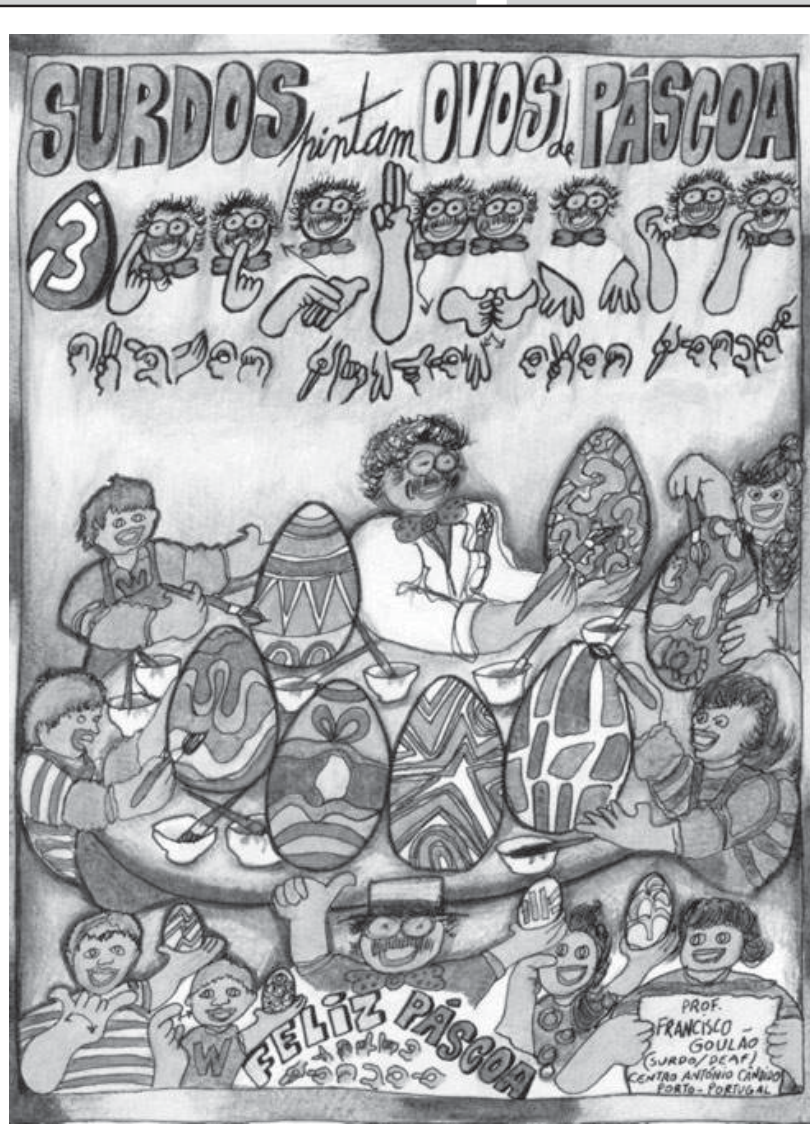 SURDOS pintam OVOS de PÁSCOA
3
M
W
FELIZ PÁSCOA
PROF.
FRANCISCO -
GOULAO
(SURDO/DEAF)
CENTRO ANTÓNIO CÂNDIDO
PORTO - PORTUGAL